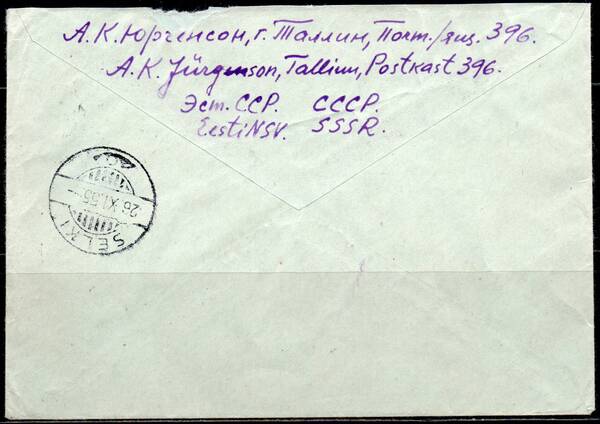 А.К. Юргенсон, г. Таллин, Почт./ящ. 396.
A.K. Jürgenson, Tallinn, Postkast 396.
Эст. ССР. СССР.
Eesti NSV. SSSR.
26.XI.55
SELKI